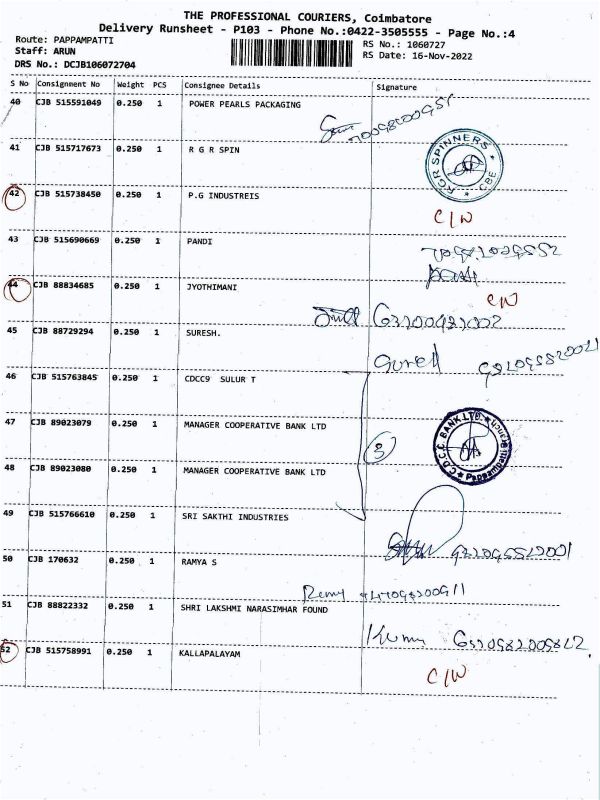 THE PROFESSIONAL COURIERS, Coimbatore
Delivery Runsheet - P103 - Phone No.:0422-3505555 - Page No.:4
Route: PAPPAMPATTI
RS No.: 1060727
Staff: ARUN
RS Date: 16-Nov-2022
DRS No.: DCJB106072704
S No Consignment No Weight PCS Consignee Details Signature
40 CJB 515591049 0.250 1 POWER PEARLS PACKAGING
41 CJB 515717673 0.250 1 R G R SPIN
RGR SPINNERS * CBE *
42 CJB 515738450 0.250 1 P.G INDUSTREIS
C/W
43 CJB 515690669 0.250 1 PANDI
44 CJB 88834685 0.250 1 JYOTHIMANI
C/W
45 CJB 88729294 0.250 1 SURESH.
46 CJB 515763845 0.250 1 CDCC9 SULUR T
47 CJB 89023079 0.250 1 MANAGER COOPERATIVE BANK LTD
3
C.D.C.C. BANK LTD. * Pappampatti Branch *
48 CJB 89023080 0.250 1 MANAGER COOPERATIVE BANK LTD
49 CJB 515766610 0.250 1 SRI SAKTHI INDUSTRIES
50 CJB 170632 0.250 1 RAMYA S
51 CJB 88822332 0.250 1 SHRI LAKSHMI NARASIMHAR FOUND
52 CJB 515758991 0.250 1 KALLAPALAYAM
C/W